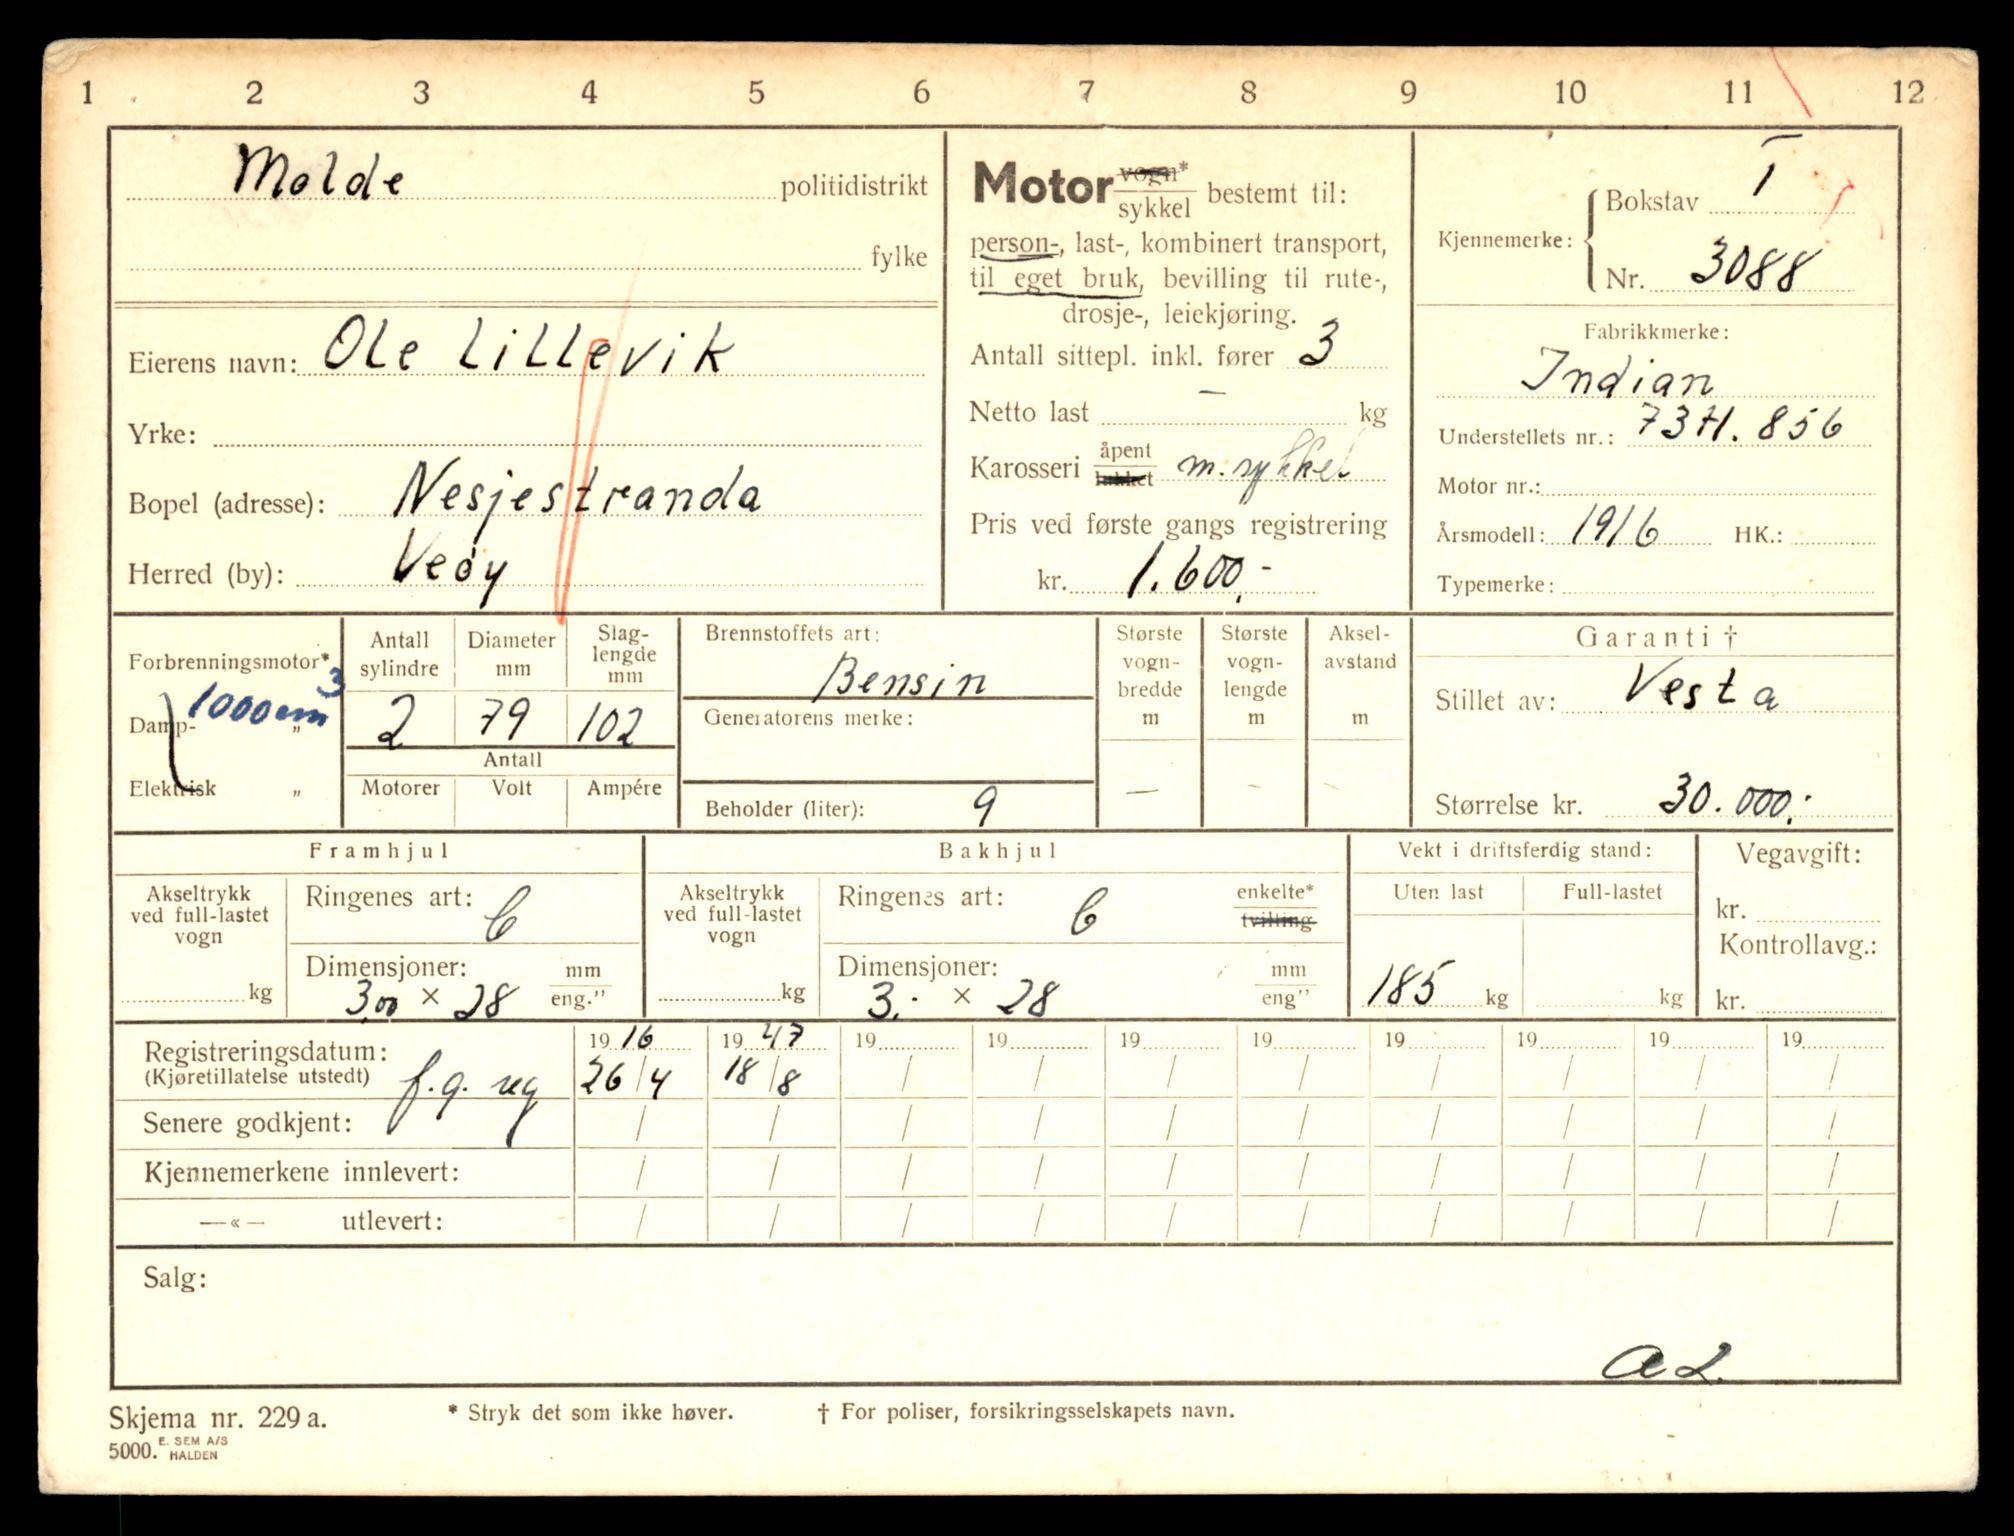 1 2 3 4 5 6 7 8 9 10 11 12
Molde politidistrikt
fylke
Eierens navn: Ole Lillevik
Yrke:
Bopel (adresse): Nesjestranda
Herred (by): Veøy
Motor vogn*
sykkel bestemt til:
person-, last-, kombinert transport,
til eget bruk, bevilling til rute-,
drosje-, leiekjøring.
Antall sittepl. inkl. fører 3
Netto last — kg
Karosseri åpent
lukket m. sykkel
Pris ved første gangs registrering
kr. 1.600.-
Kjennemerke: Bokstav T
Nr. 3088
Fabrikkmerke:
Indian
Understellets nr.: 73H.856
Motor nr.:
Årsmodell: 1916 HK.:
Typemerke:
Forbrenningsmotor*
1000 cm3
Damp- „
Elektrisk „
Antall sylindre
Diameter mm
Slag-
lengde
mm
2 79 102
Antall
Motorer Volt Ampére
Brennstoffets art:
Bensin
Generatorens merke:
Beholder (liter): 9
Største
vogn-
bredde
m
—
Største
vogn-
lengde
m
-
Aksel-
avstand
m
-
Garanti †
Stillet av: Vesta
Størrelse kr. 30.000.-
Framhjul
Akseltrykk
ved full-lastet
vogn
kg
Ringenes art: C
Dimensjoner: mm
3,00 × 28 eng."
Bakhjul
Akseltrykk
ved full-lastet
vogn
kg
Ringenes art: C enkelte*
tvilling
Dimensjoner: mm
3.- × 28 eng"
Vekt i driftsferdig stand:
Uten last Full-lastet
185 kg kg
Vegavgift:
kr.
Kontrollavg.:
kr.
Registreringsdatum: 1916 1947 19 19 19 19 19 19 19 19
(Kjøretillatelse utstedt) f.g. reg 26/4 18/8 / / / / / / / /
Senere godkjent: / / / / / / / / / /
Kjennemerkene innlevert: / / / / / / / / / /
—«— utlevert: / / / / / / / / / /
Salg:
a2.
Skjema nr. 229 a. * Stryk det som ikke høver. † For poliser, forsikringsselskapets navn.
5000. E. SEM A/S
HALDEN